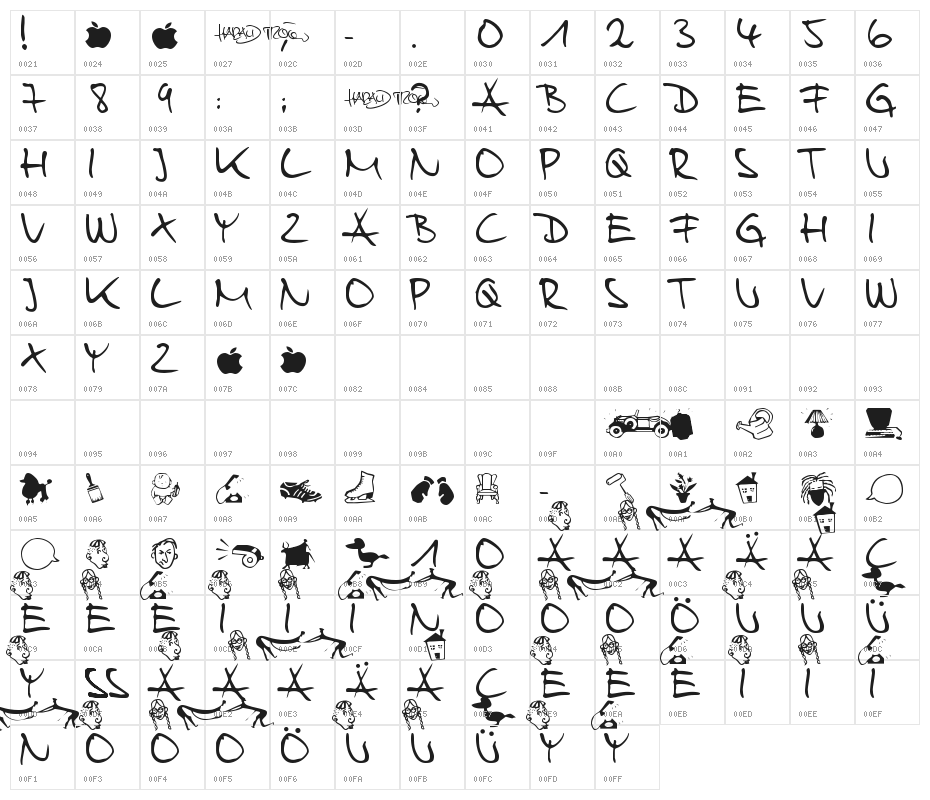 ! , - . 0 1 2 3 4 5 6
0021 0024 0025 0027 002C 002D 002E 0030 0031 0032 0033 0034 0035 0036
7 8 9 : ; ? A B C D E F G
0037 0038 0039 003A 003B 003D 003F 0041 0042 0043 0044 0045 0046 0047
H I J K L M N O P Q R S T U
0048 0049 004A 004B 004C 004D 004E 004F 0050 0051 0052 0053 0054 0055
V W X Y Z A B C D E F G H I
0056 0057 0058 0059 005A 0061 0062 0063 0064 0065 0066 0067 0068 0069
J K L M N O P Q R S T U V W
006A 006B 006C 006D 006E 006F 0070 0071 0072 0073 0074 0075 0076 0077
X Y Z
0078 0079 007A 007B 007C 0082 0084 0085 0088 008B 008C 0091 0092 0093
0094 0095 0096 0097 0098 0099 009B 009C 009F 00A0 00A1 00A2 00A3 00A4
-
00A5 00A6 00A7 00A8 00A9 00AA 00AB 00AC 00AE 00AF 00B0 00B1 00B2
1 O A A A Ä A C
00B3 00B4 00B5 00B6 00B7 00B8 00B9 00BA 00C2 00C3 00C4 00C5
E E E I I I N O O O Ö U U Ü
00C9 00CA 00CB 00CD 00CE 00CF 00D1 00D3 00D4 00D5 00D6 00DA 00DB 00DC
Y SS A A A Ä A C E E E I I I
00DD 00DF 00E1 00E2 00E3 00E4 00E5 00E7 00E9 00EA 00EB 00ED 00EE 00EF
N O O O Ö U U Ü Y Y
00F1 00F3 00F4 00F5 00F6 00FA 00FB 00FC 00FD 00FF